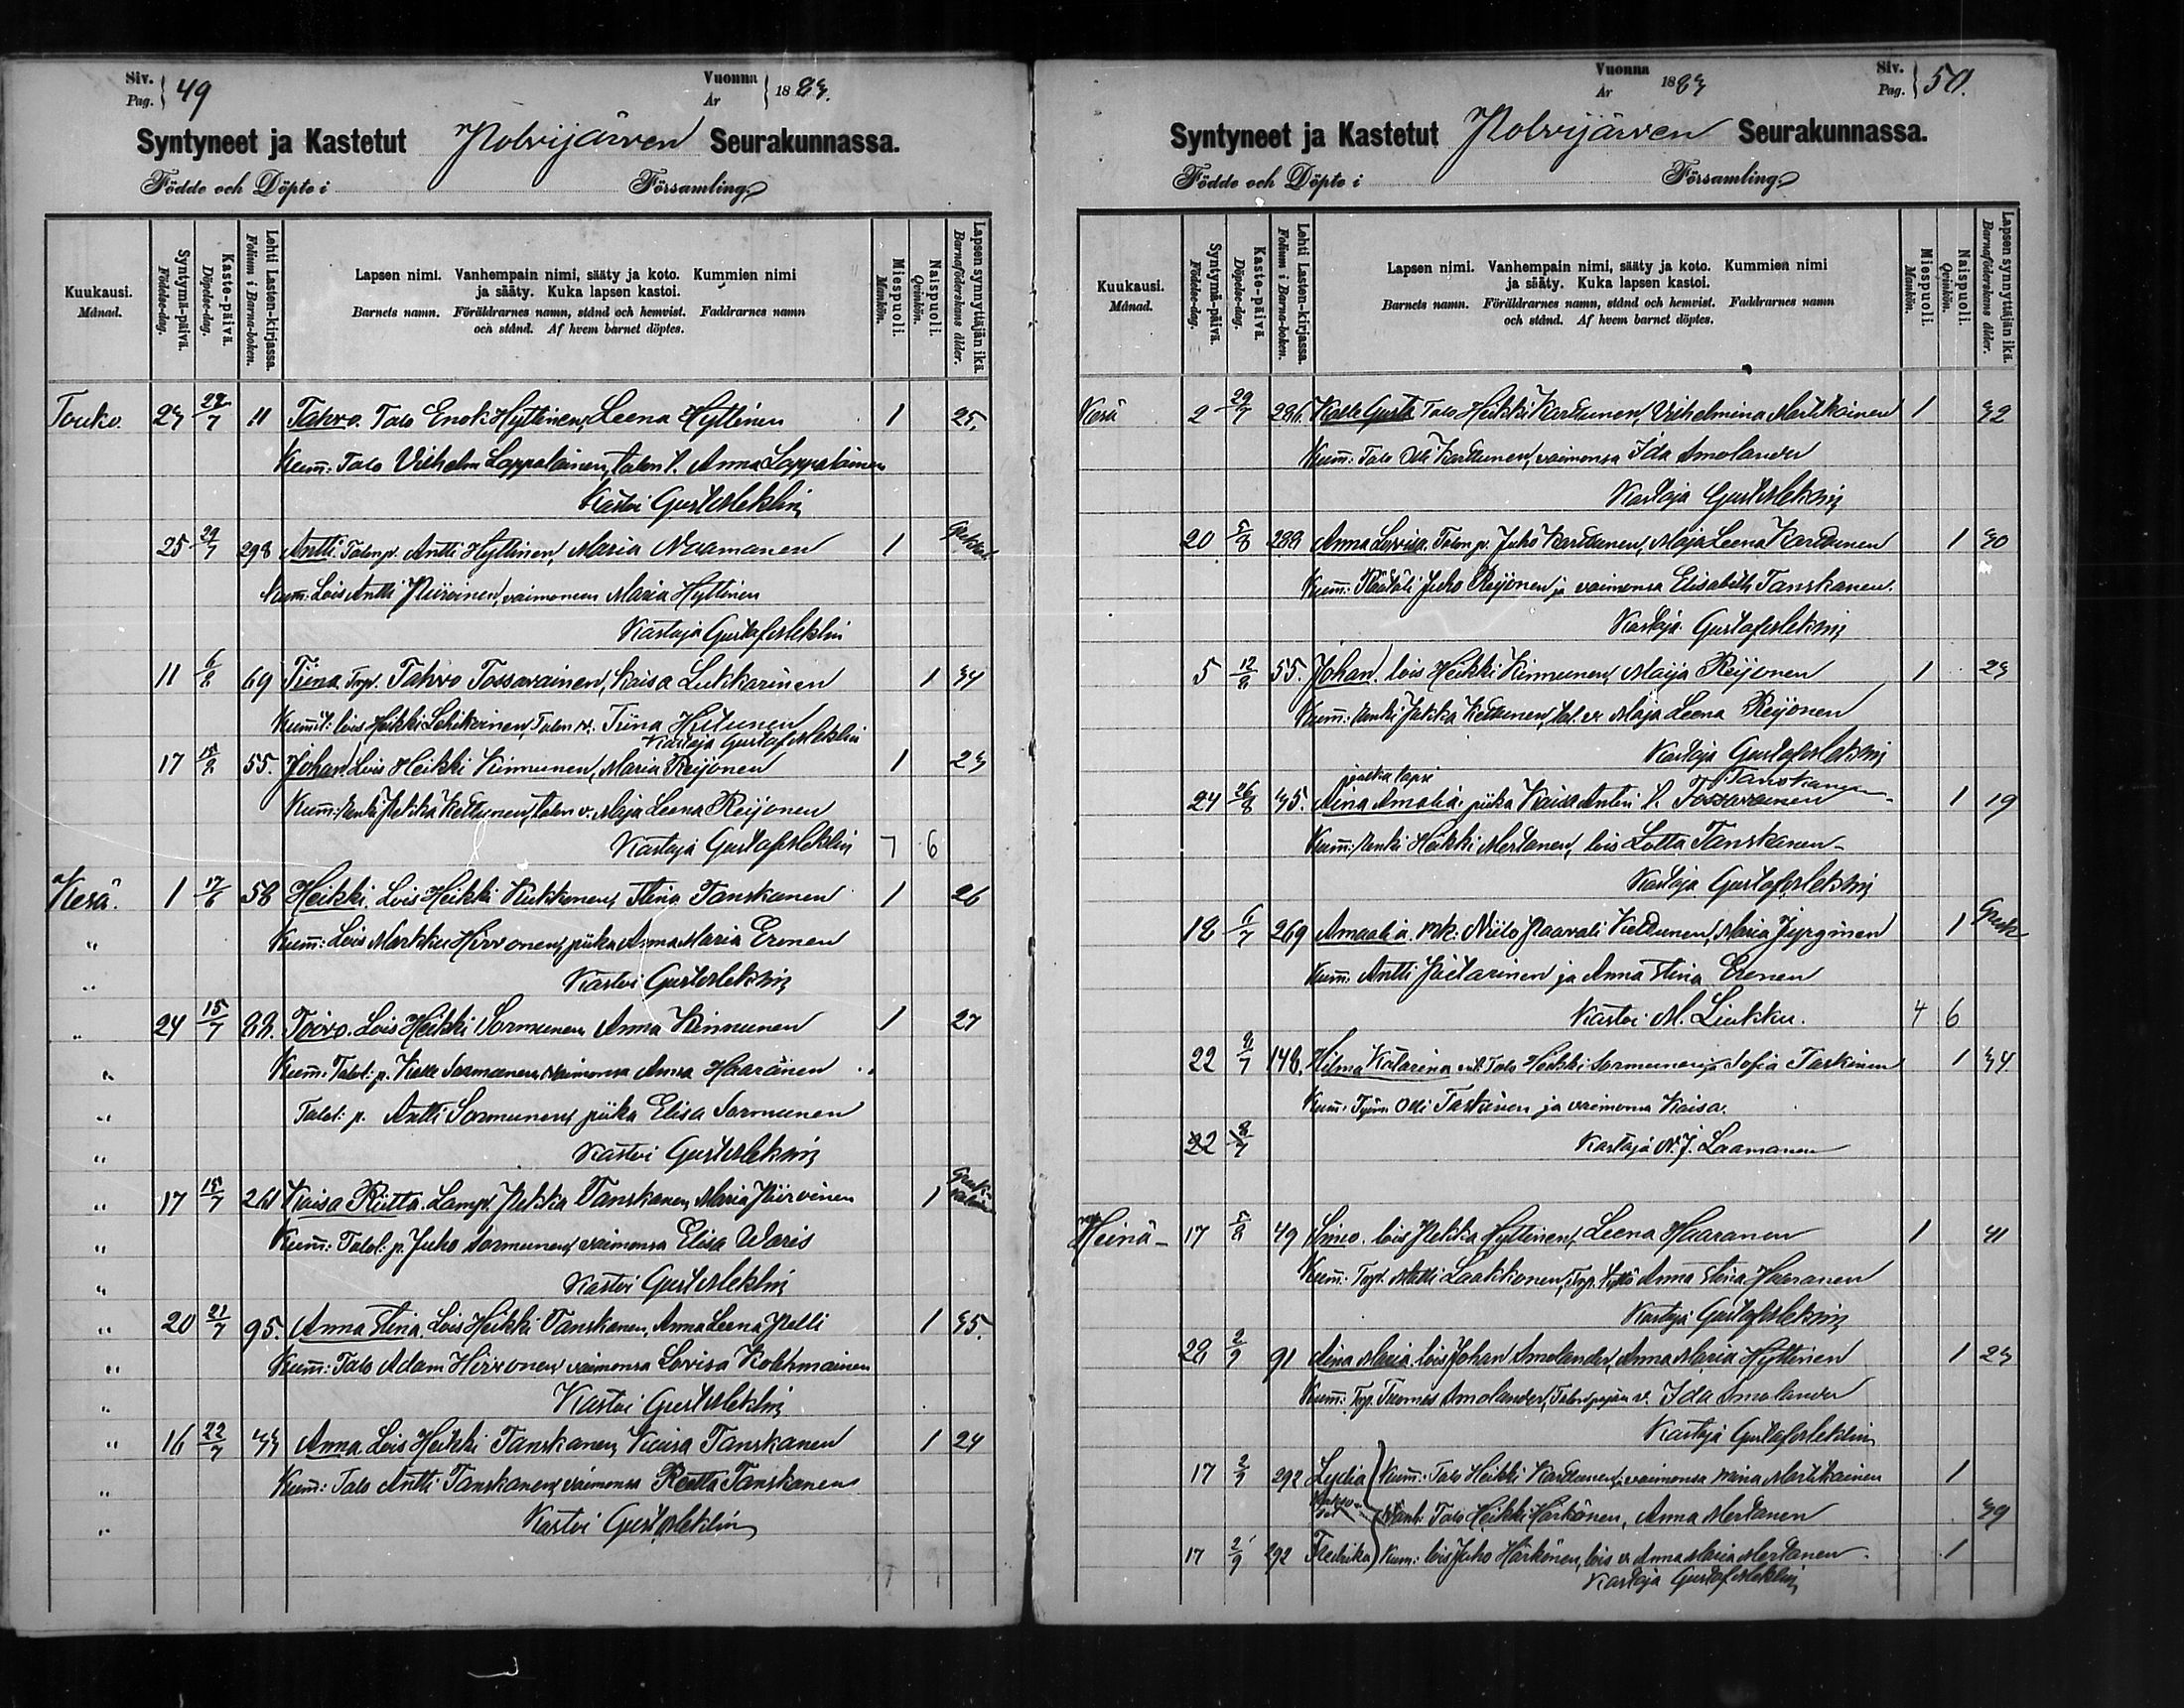 Siv.
Pag. 49
Vuonna
Ar 1883.
Syntyneet ja Kastetut Polvijärven Seurakunnassa.
Födde och Döpte i Församling
Kuukausi.
Månad.
Syntymä-päivä.
Födelse-dag.
Kaste-päivä.
Döpelse-dag.
Lehti Lasten-kirjassa.
Folium i Barna-boken.
Lapsen nimi. Vanhempain nimi, sääty ja koto. Kummien nimi
ja sääty. Kuka lapsen kastoi.
Barnets namn. Föräldrarnes namn, stånd och hemvist. Faddrarnes namn
och stånd. Af hvem barnet döptes.
Miespuoli.
Mankön.
Naispuoli.
Qvinkön.
Lapsen synnyttäjän ikä.
Barnaföderskans ålder.
Touko. 23 /7 11 Tahvo. Talo Enok Hyttinen, Leena Hyttinen 1 25.
Kum: Talo Vilhelm Lappalainen, Anna Lappalainen
Kastoi Gust Meklin
25 29/7 298 Antti. Talon p. Antti Hyttinen, Maria Naamanen 1
Kum: Lois Antti Piiroinen, vaimonsa Maria Hyttinen
Kastaja Gustaf Meklin
11 6/8 69 Tiina. Tahvo Tossavainen, Kaisa Lukkarinen 1 34
Heikki Tiina
Kastaja Gustaf Meklin
17 /8 55. Johan. Lois Heikki Kinnunen, Maria Reijonen 1 23
Kum: Renki Pekka Kettunen, talon v. Maija Leena Reijonen
Kastaja Gustaf Meklin 7 6
Kesä. 1 17/6 58 Heikki. Lois Heikki Kukkonen, Stina Tanskanen 1 26
" Kum: Lois Markku Hirvonen, piika Anna Maria Eronen
" Kastoi Gust Meklin
" 24 15/7 88. Toivo. Lois Heikki Sormunen, Anna Kinnunen 1 27
" Kum: Talol: p. Kalle Sormunen, vaimonsa Anna Haaranen
" Talol: p. Antti Sormunen, piika Elisa Sormunen
" Kastoi Gust Meklin
" 17 15/7 261 Kaisa Riitta. Pekka Tanskanen, Maria Piiroinen 1
" Kum: Talol: p. Juho Sormunen, vaimonsa Elisa Waris
" Kastoi Gust Meklin
" 20 21/7 95. Anna Stina. Lois Heikki Tanskanen, Anna Leena Pelli 1 35.
" Kum: Talo Adam Hirvonen, vaimonsa Lovisa Kolehmainen
" Kastoi Gust Meklin
" 16 22/7 Anna. Lois Heikki Tanskanen, Kaisa Tanskanen 1 24
" Kum: Talo Antti Tanskanen, vaimonsa Reetta Tanskanen
" Kastoi Gust Meklin
Vuonna
Ar 1883
Siv.
Pag. 50.
Syntyneet ja Kastetut Polvijärven Seurakunnassa.
Födde och Döpte i Församling
Kuukausi.
Månad.
Syntymä-päivä.
Födelse-dag.
Kaste-päivä.
Döpelse-dag.
Lehti Lasten-kirjassa.
Folium i Barna-boken.
Lapsen nimi. Vanhempain nimi, sääty ja koto. Kummien nimi
ja sääty. Kuka lapsen kastoi.
Barnets namn. Föräldrarnes namn, stånd och hemvist. Faddrarnes namn
och stånd. Af hvem barnet döptes.
Miespuoli.
Mankön.
Naispuoli.
Qvinkön.
Lapsen synnyttäjän ikä.
Barnaföderskans ålder.
Kesä 2 29/7 286. Kalle Gust. Talo Heikki Karttunen, Vilhelmina Martikainen 1 32
Kum: Talo Olli Karttunen, vaimonsa Ida Smolander
Kastaja Gust Meklin
20 5/8 288 Anna Lovisa. Talon p. Juho Karttunen, Maja Leena Karttunen 1 30
Kum: Räätäli Juho Reijonen ja vaimonsa Elisabeth Tanskanen.
Kastaja Gustaf Meklin
5 12/8 55. Johan. lois Heikki Kinnunen, Maija Reijonen 1 23
Kum: Renki Pekka Kettunen, tal. v. Maja Leena Reijonen
Kastaja Gustaf Meklin
Tanskanen
24 26/8 35. Aina Amalia. piika Kaisa Antin t. Tossavainen 1 19
Kum: Renki Heikki Mertanen, lois Lotta Tanskanen
Kastaja Gustaf Meklin
18 6/7 269 Amaalia. Mk. Niilo Paavali Kettunen, Maria Jyrginen 1
Kum. Antti Pietarinen ja Anna Stina Eronen
Kastoi M. Liukku. 4 6
22 8/7 148. Hilma Katarina. Talo Heikki Sormunen ja Sofia Taskinen 1 34
Kum: Työm. Olli Taskinen ja vaimonsa Kaisa.
22 8/7 Kastaja N. J. Laamanen
Heinä 17 5/8 49 Simo. lois Pekka Hyttinen, Leena Haaranen 1 41
Kum: Matti Laakkonen, Anna Stina Haaranen
Kastaja Gustaf Meklin
28 2/9 91 Aina Maria. lois Johan Smolander, Anna Maria Hyttinen 1 23
Kum: Tuomas Smolander, Ida Smolander
Kastaja Gustaf Meklin
17 2/9 292 Lydia Kum: Talo Heikki Karttunen, vaimonsa Mina Martikainen 1
Vanh: Talo Heikki Härkönen, Anna Mertanen 39
17 2/9 292 Fredrika Kum: lois Juho Härkönen, lois v. Anna Maria Mertanen. 1
Kastaja Gustaf Meklin